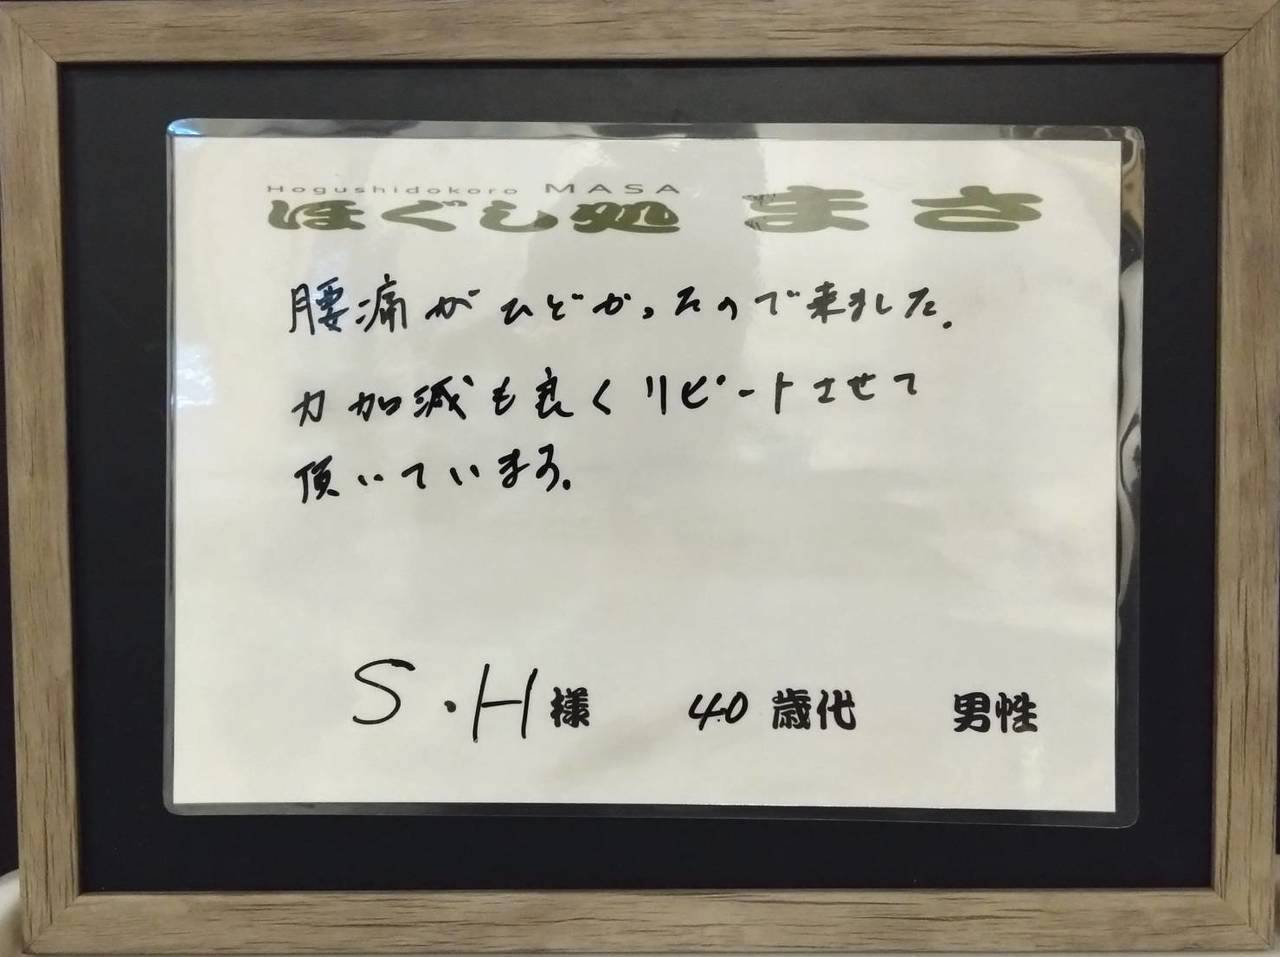 Hogushidokoro MASA
ほぐし処 まさ
腰痛がひどかったので来ました。
力加減も良くリピートさせて
頂いています。
S・H様 40歳代 男性